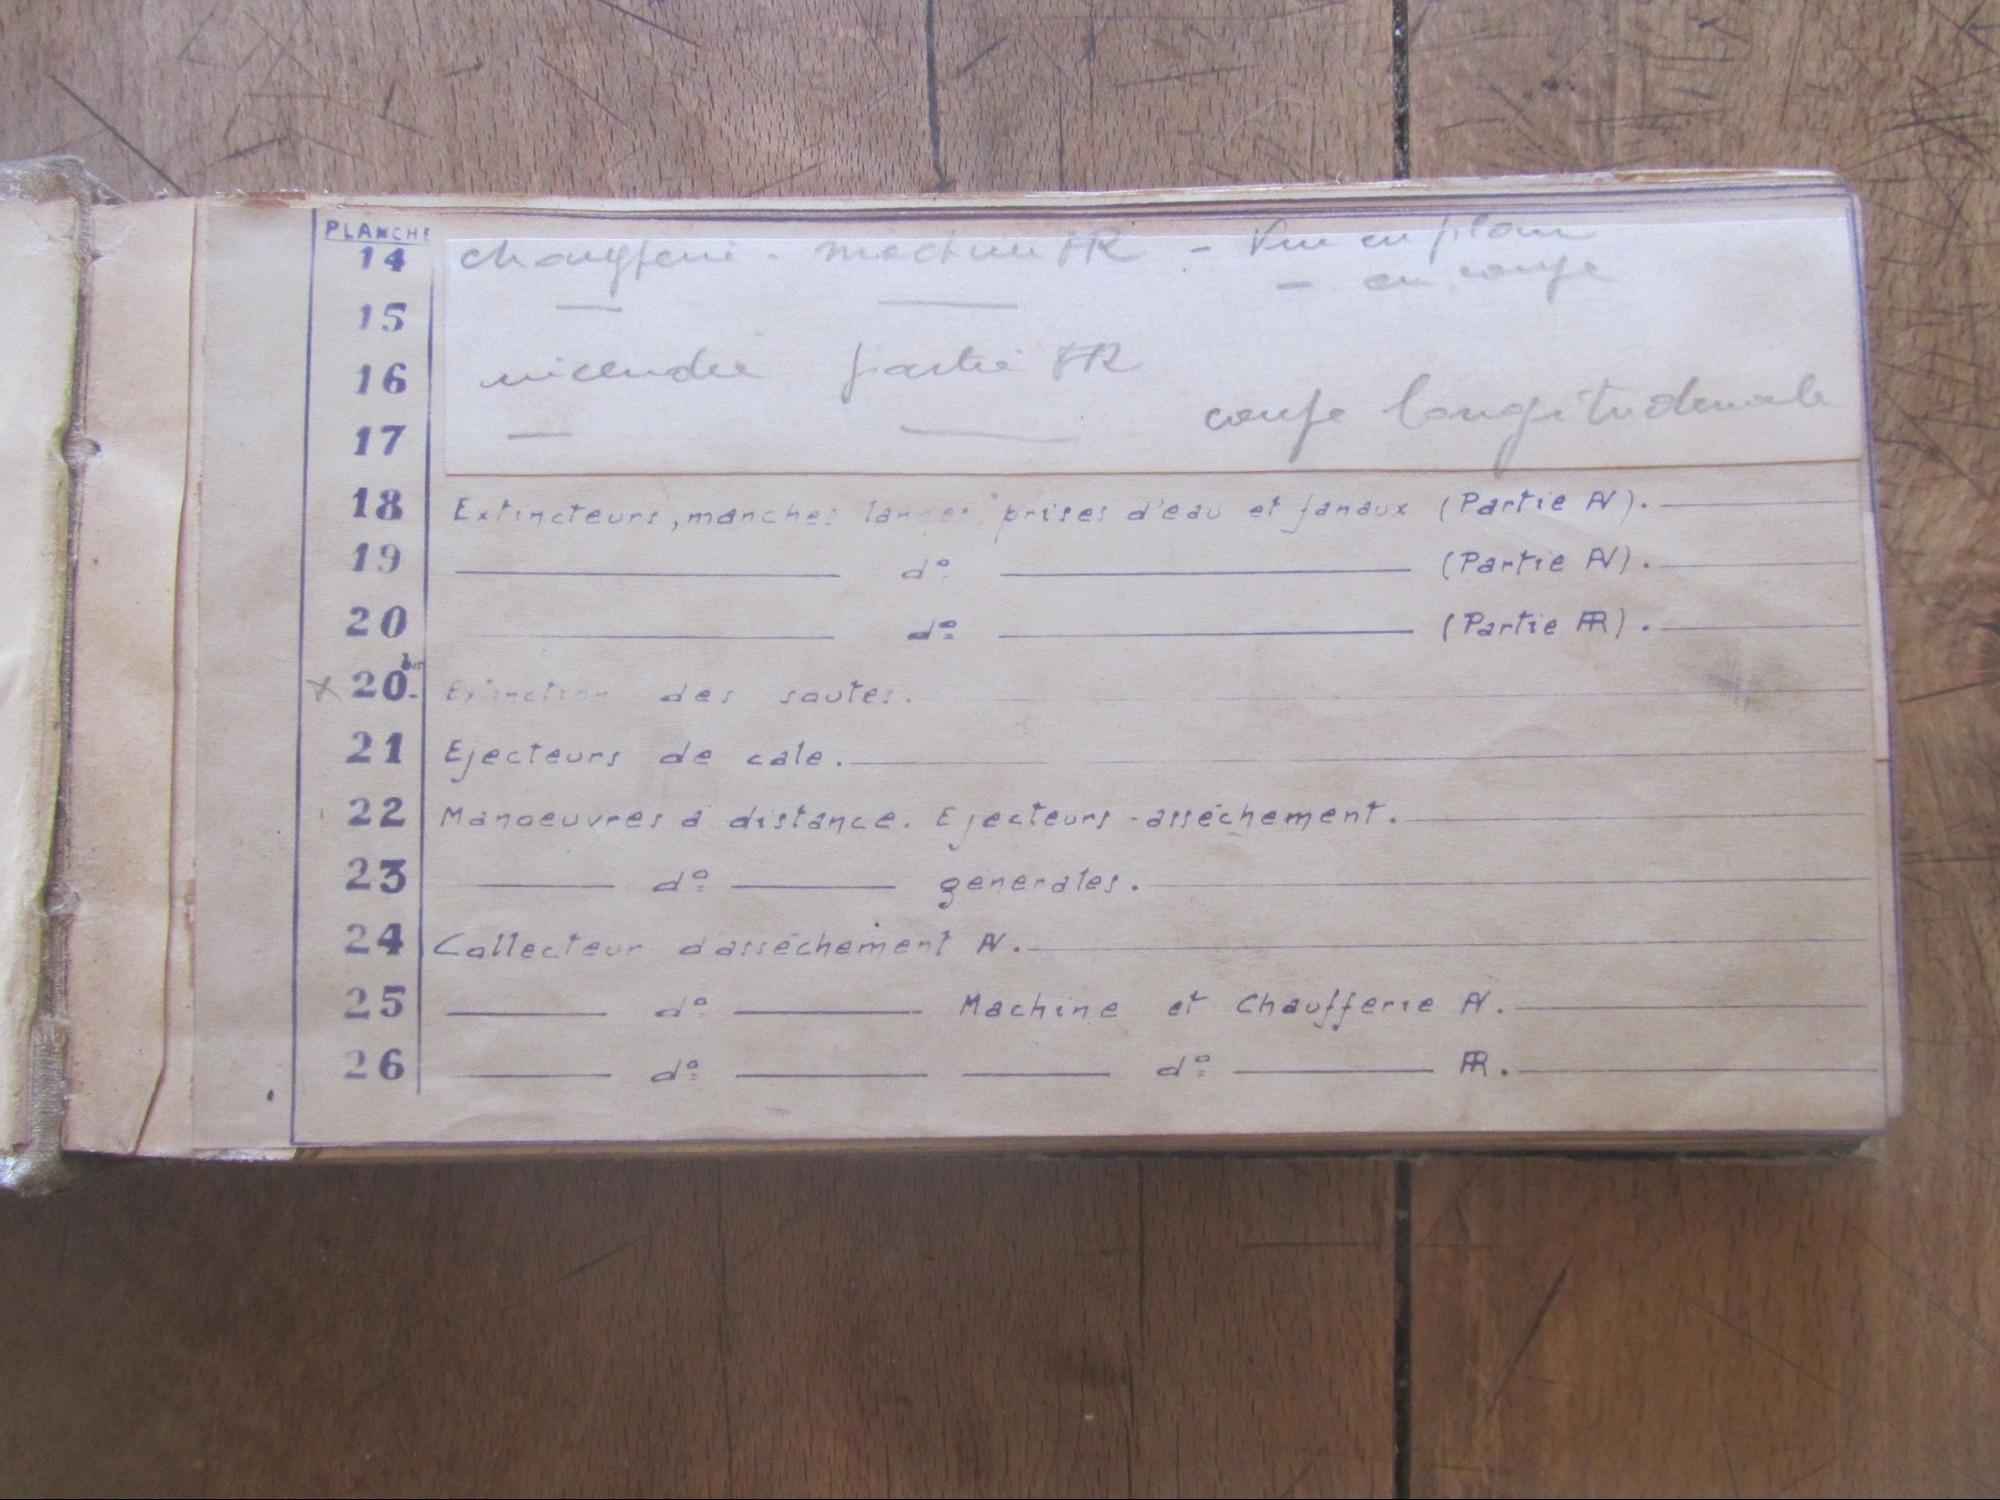 PLANCHE
14 chaufferie - machine AR - Vue en plan
15 — — - en coupe
16 incendie partie AR
17 — — coupe longitudinale
18 Extincteurs, manches lances prises d'eau et fanaux (Partie AV).
19 — dº — (Partie AV).
20 — dº — (Partie AR).
x 20 bis - Extinction des soutes.
21 Ejecteurs de cale.
22 Manoeuvres à distance. Ejecteurs - asséchement.
23 — dº — generales.
24 Collecteur dasséchement AV.
25 — dº — Machine et Chaufferie AV.
26 — dº — — dº — AR.